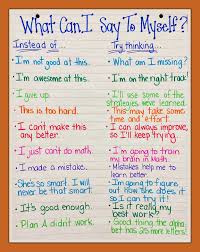 What Can I Say To Myself?
Instead of... Try thinking...
• I'm not good at this. • What am I missing?
• I'm awesome at this. • I'm on the right track!
• I give up. • I'll use some of the
strategies we've learned
• This is too hard. • This may take some
time and effort.
• I can't make this • I can always improve,
any better. so I'll keep trying.
• I just can't do math. • I'm going to train
my brain in Math.
• I made a mistake. • Mistakes help me to
learn better.
• She's so smart. I will • I'm going to figure
never be that smart. out how she does it,
so I can try it!
• It's good enough. • Is it really my
best work?
• Plan A didn't work. • Good thing the alpha-
bet has 25 more letters!